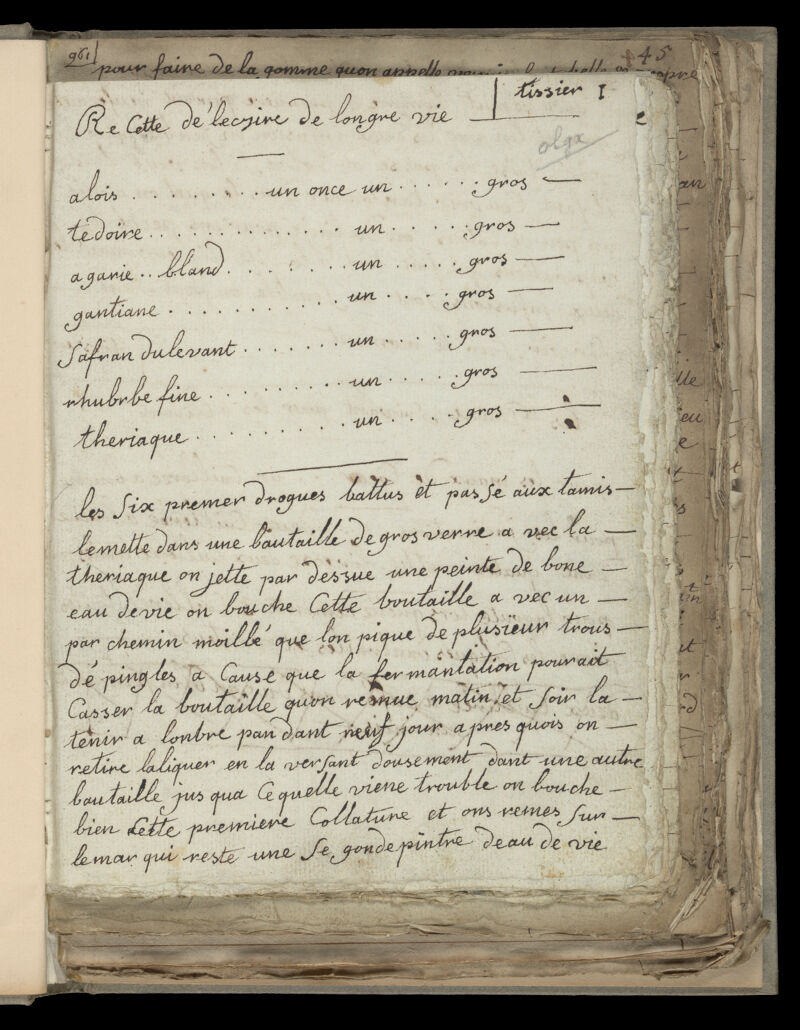 961
45
pour faire de la gomme quon appelle propre
tissier I
Re Cette de lecsire de longre vie
olga
alois ........ un once un ...... gros —
tedoire ............. un ...... gros —
agarie .. bland ........ un ..... gros —
gantiane ........... un .... gros —
Safran dulevant ....... un ..... gros —
rhubrbe fine ......... un ..... gros —
theriaque .......... un .... gros —
les Six premer drogues battus et passé aux tamis —
lemette dans une boutaille de gros verre a vec la —
theriaque on jette par dessue une peinte de bone —
eau de vie on bouche Cette boutaille a vec un —
par chemin moillé que lon pique de plusïeur trous —
dé pingles a Cause que la fermantation pouroit
Casser la boutaille quon remue matin et Soir la —
tenir a lonbre pandant neuf jour a pres quois on —
retire laliquer en la versant dousement dant une autre
boutaille jus qua Ce quelle viene trouble on bouche —
bien Cette premiere Collature et ons remes Sur —
lemar qui reste une Se gonde pintre deau de vie